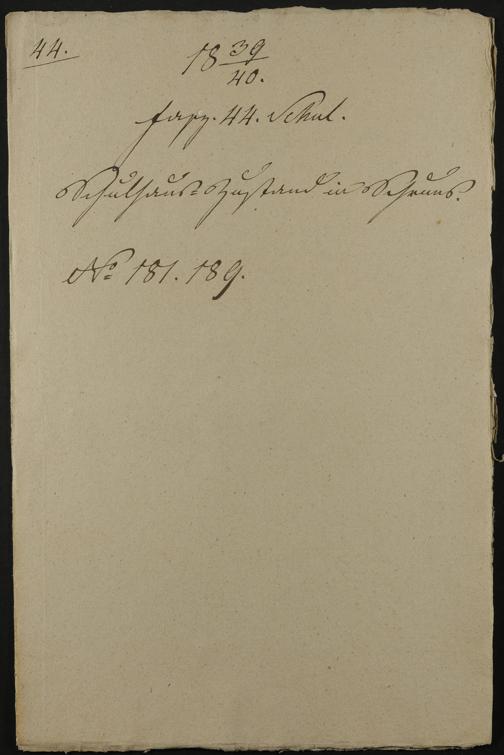 44.
18 39/40.
Fasz. 44. Schul.
Schulhaus-Zustand in Schruns.
No 181. 189.